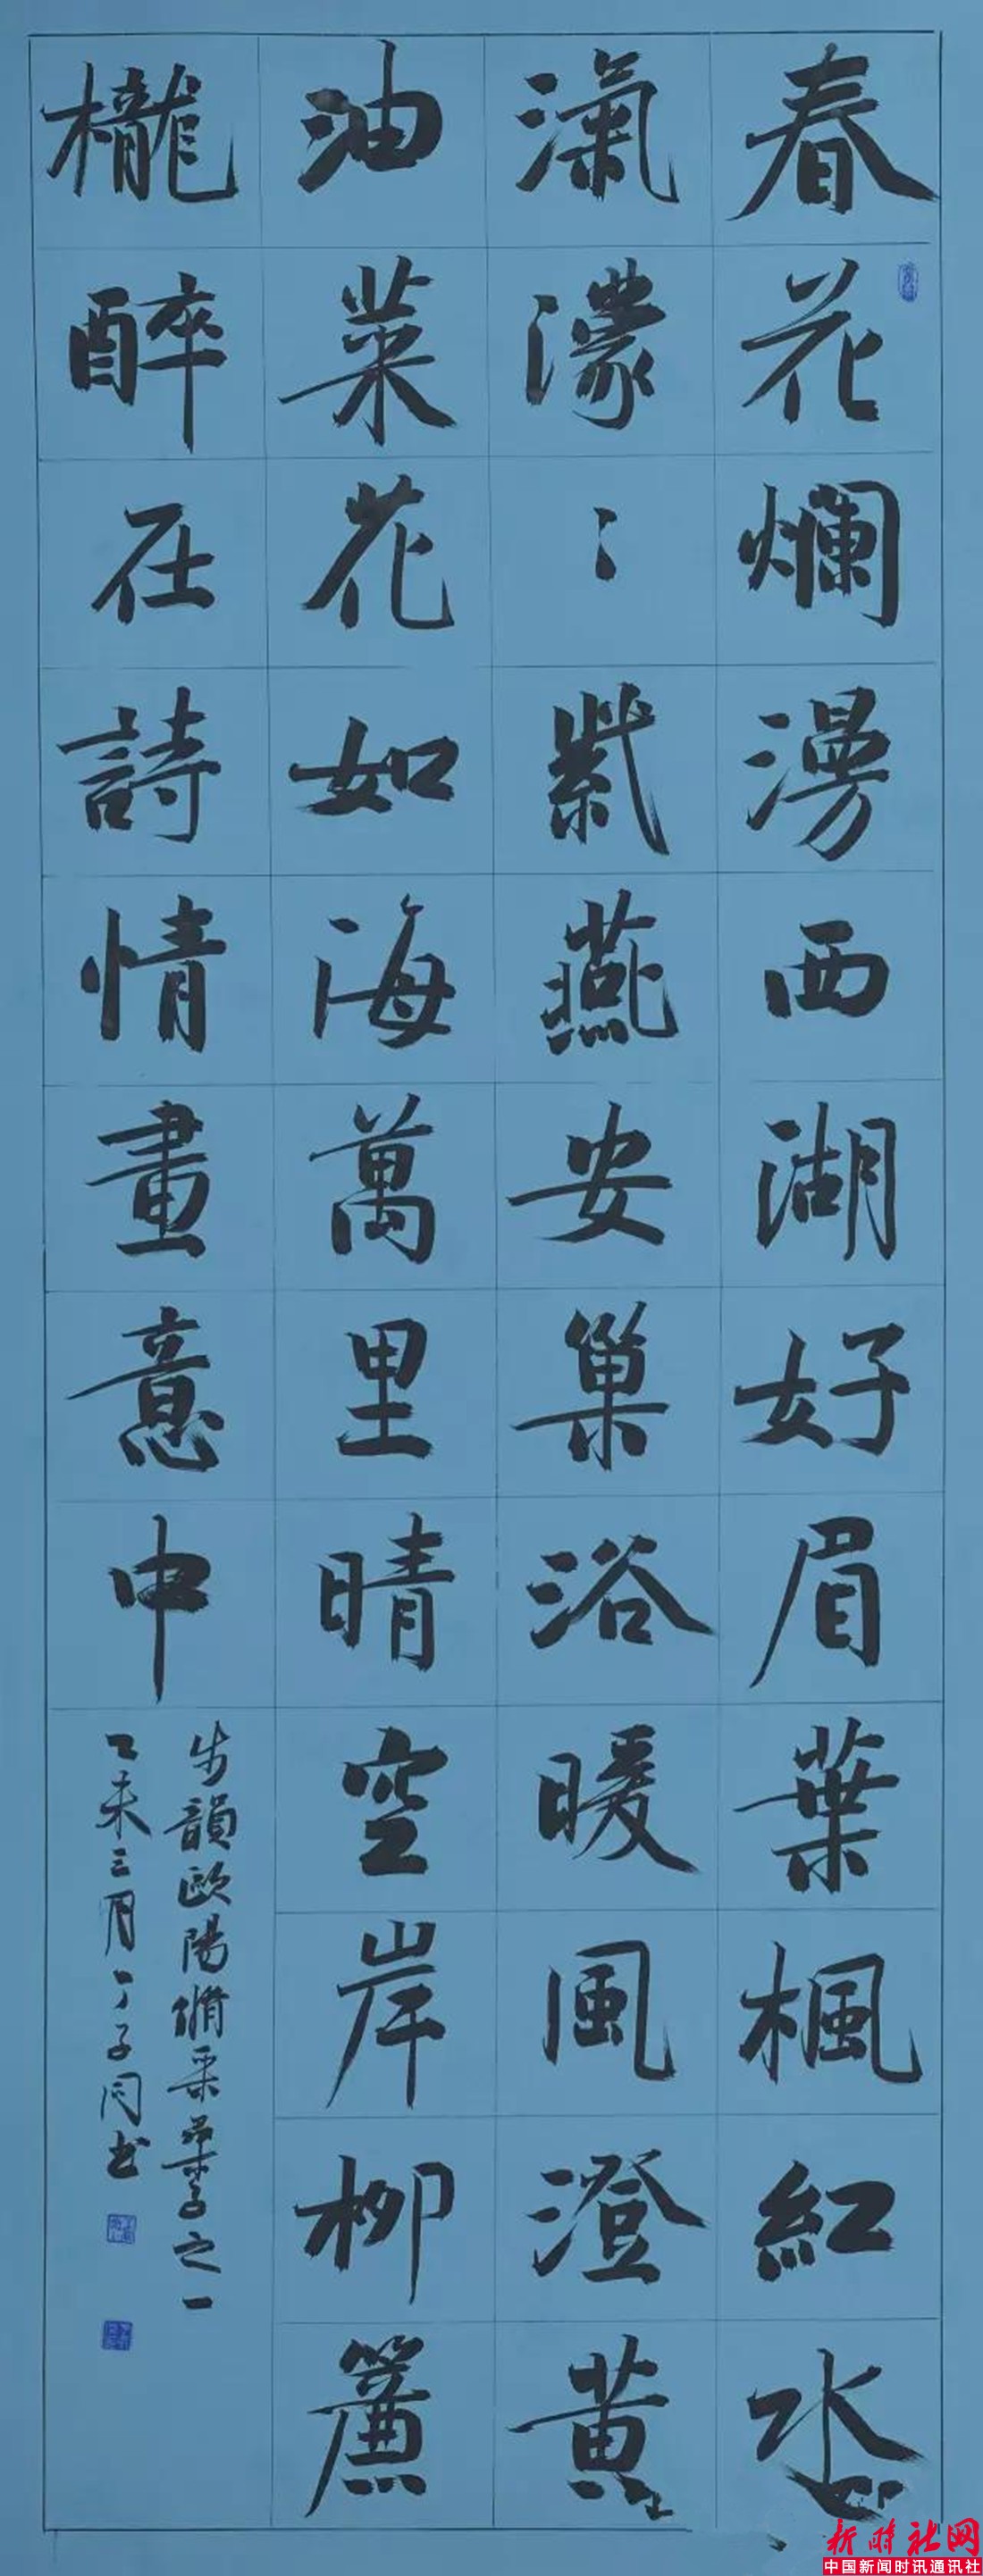 春花爛漫西湖好眉葉楓紅水
氣濛〻紫燕安巢浴暖風澄黃
油菜花如海萬里晴空岸柳簾
櫳醉在詩情畫意中
步韻歐陽脩采桑子之一
乙未三月丁子同书
新时社网
中国新闻时讯通讯社